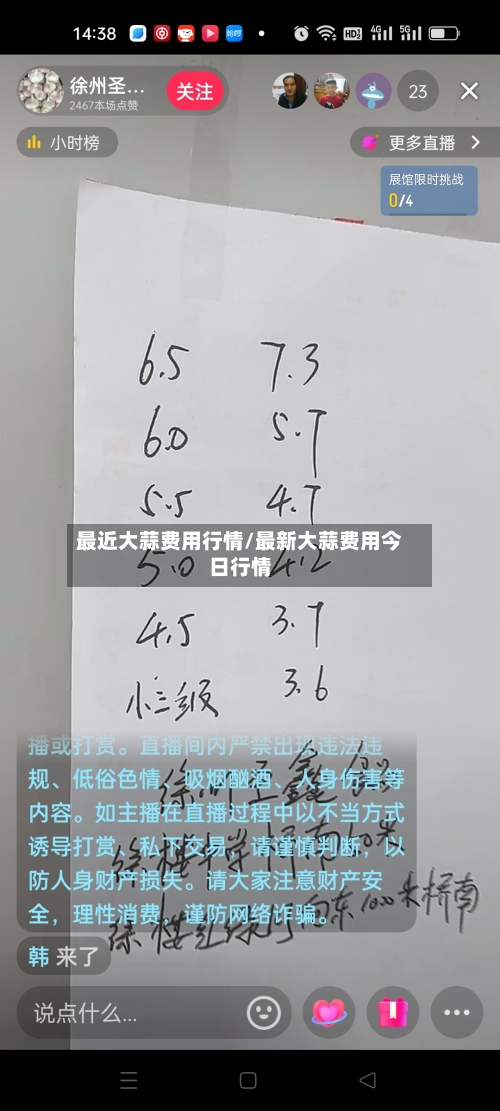 14:38
HD
4G
5G
徐州圣...
2467本场点赞
关注
23
小时榜
更多直播
展馆限时挑战
0/4
6.5 7.3
6.0 5.7
5.5 4.7
最近大蒜费用行情/最新大蒜费用今
日行情
5.0 4.2
4.5 3.7
小三级 3.6
播或打赏。直播间内严禁出现违法违
规、低俗色情、吸烟酗酒、人身伤害等
内容。如主播在直播过程中以不当方式
诱导打赏、私下交易，请谨慎判断，以
防人身财产损失。请大家注意财产安
全，理性消费，谨防网络诈骗。
向东1000米桥南
韩 来了
说点什么...